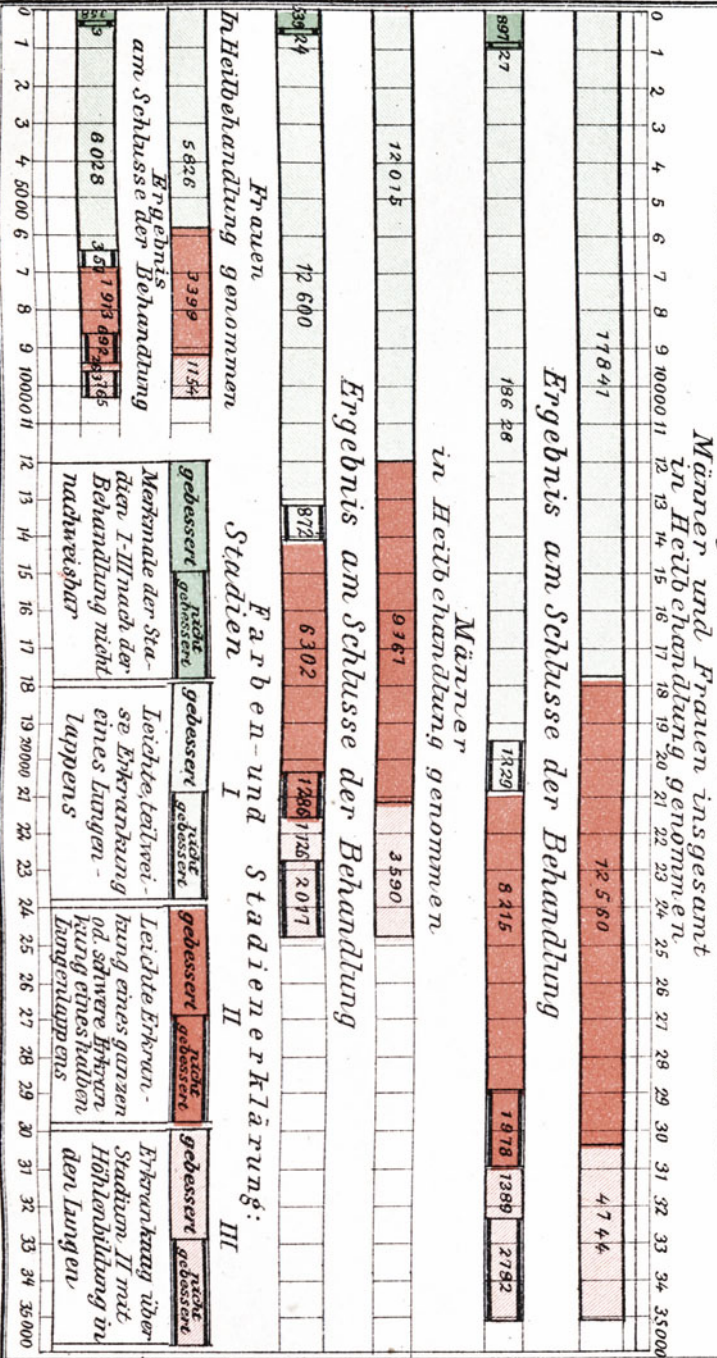 Männer und Frauen insgesamt
in Heilbehandlung genommen
0 1 2 3 4 5 6 7 8 9 10000 11 12 13 14 15 16 17 18 19 20 21 22 23 24 25 26 27 28 29 30 31 32 33 34 35000
17841 12560 4744
Ergebnis am Schlusse der Behandlung
897 27 18628 1229 8215 1978 1389 2782
Männer
in Heilbehandlung genommen
12015 9161 3590
Ergebnis am Schlusse der Behandlung
539 24 12600 872 6302 1286 1126 2017
Frauen
In Heilbehandlung genommen
5826 3399 1154
Ergebnis
am Schlusse der Behandlung
358 3 6028 357 1913 692 263 765
Farben- und Stadienerklärung:
Stadien I II III
gebessert nicht gebessert gebessert nicht gebessert gebessert nicht gebessert gebessert nicht gebessert
Merkmale der Sta-
dien I-III nach der
Behandlung nicht
nachweisbar
Leichte, teilwei-
se Erkrankung
eines Lungen-
lappens
Leichte Erkran-
kung eines ganzen
od. schwere Erkran
kung eines halben
Lungenlappens
Erkrankung über
Stadium II mit
Höhlenbildung in
den Lungen
0 1 2 3 4 5000 6 7 8 9 10000 11 12 13 14 15 16 17 18 19 20000 21 22 23 24 25 26 27 28 29 30 31 32 33 34 35000